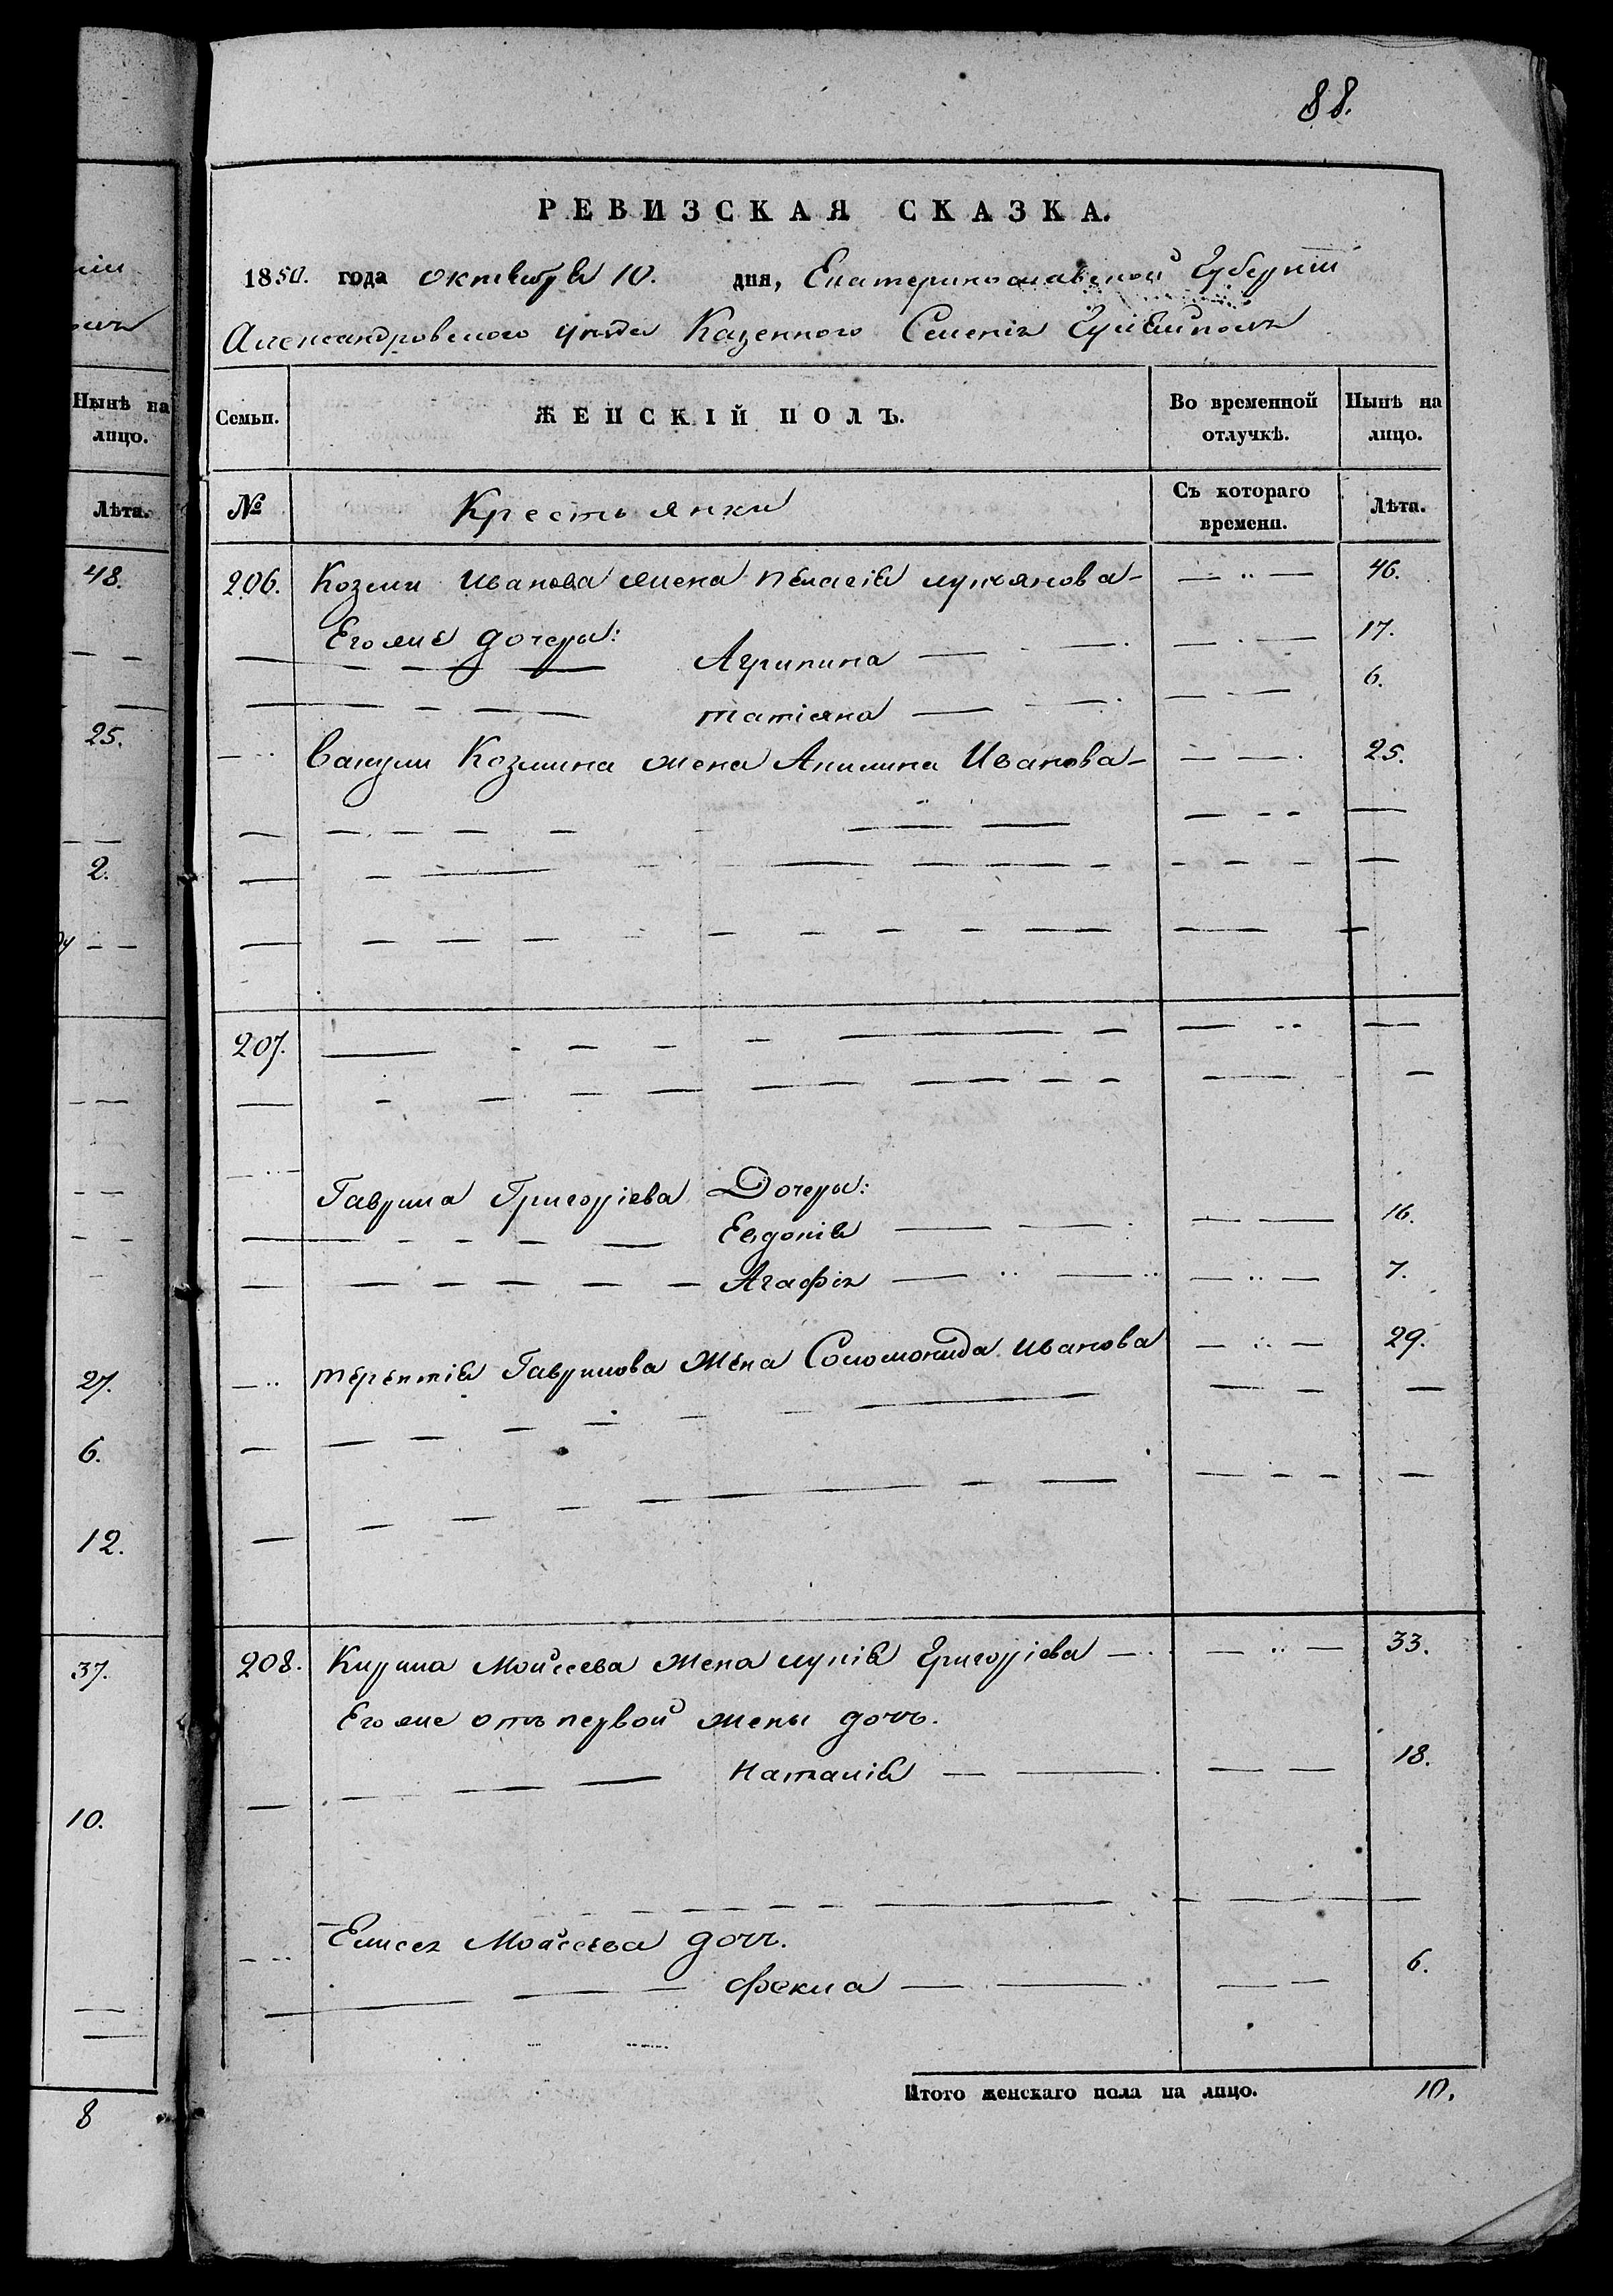 88.
РЕВИЗСКАЯ СКАЗКА.
1850. года октября 10. дня, Екатеринославской Губерніи
Александровского уѣзда Казенного Селенія Гуляйполя
Семьи. ЖЕНСКІЙ ПОЛЪ. Во временной отлучкѣ. Нынѣ на лицо.
№ Крестьянки Съ котораго времени. Лѣта.
206. Козми Иванова жена Пелагія Лукьянова 46.
Его же дочери:
Агрипина 17.
Татіяна 6.
Вакули Козмина жена Акилина Иванова 25.
207.
Гаврила Григоріева Дочери:
Евдокія 16.
Агафія 7.
Терентія Гаврилова жена Соломонида Иванова 29.
208. Кирила Мойсеева жена Лукія Григоріева 33.
Его же отъ первой жены дочь.
Наталія 18.
Елисея Мойсеева дочь.
Фекла 6.
Итого женскаго пола на лицо. 10.
Нынѣ на
лицо.
Лѣта.
48.
25.
2.
27.
6.
12.
37.
10.
8